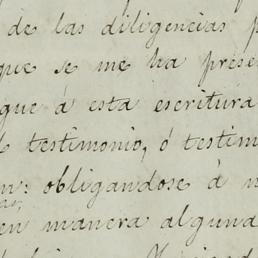 de las diligencias p
que se me ha prese
que á esta escritura
testimonio, ó testim
n: obligandose á n
en manera alguna